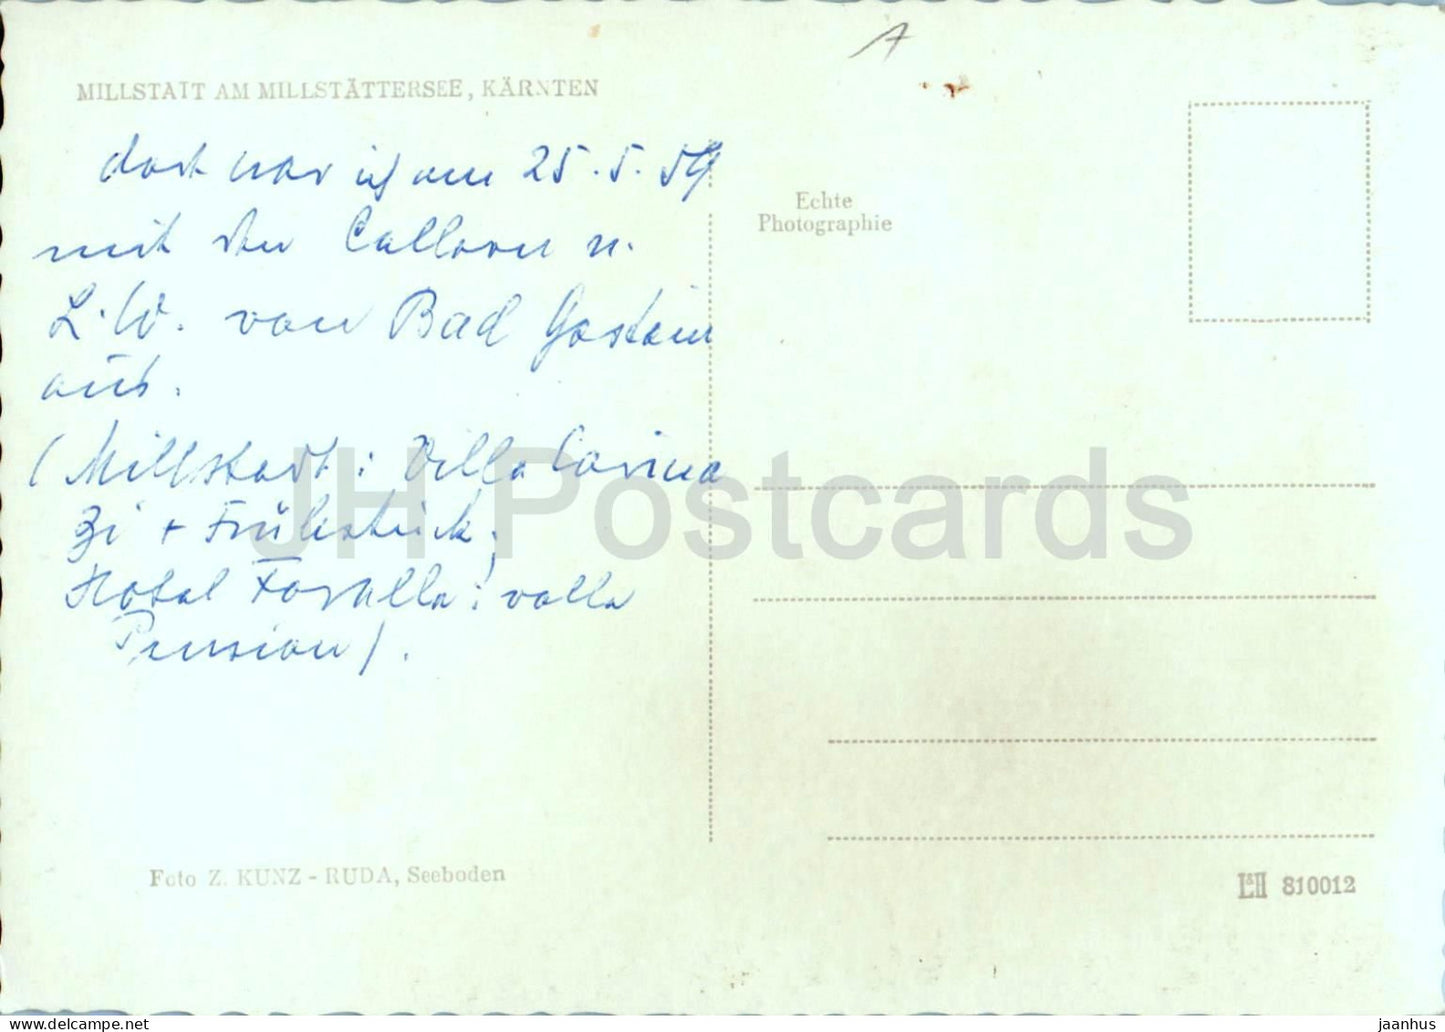 MILLSTATT AM MILLSTÄTTERSEE, KÄRNTEN
dort war ich am 25.5.59
mit den u.
L.W. von Bad Gastein
aus.
(Millstadt: Villa Carina
Zi + Frühstück;
Hotel Forelle: volle
Pension).
Foto Z. KUNZ - RUDA, Seeboden
Echte
Photographie
L&H 810012
JH Postcards
delcampe.net
jaanhus